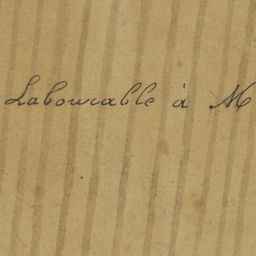 Labourable à M